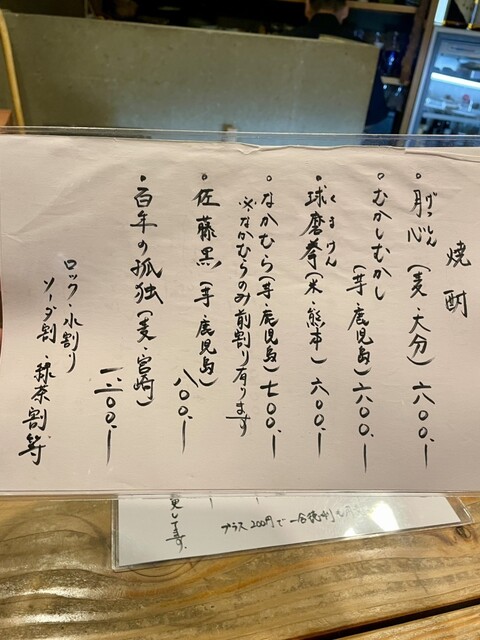 焼酎
・月心(麦・大分)六〇〇.ー
げっしん
・むかしむかし
(芋・鹿児島)六〇〇.ー
・球磨拳(米・熊本)六〇〇.ー
くまけん
・なかむら(芋・鹿児島)七〇〇.ー
※なかむらのみ前割り有ります
・佐藤黒(芋・鹿児島)
八〇〇.ー
・百年の孤独(麦・宮崎)
一、二〇〇.ー
ロック・水割り
ソーダ割・緑茶割等
プラス200円で一合徳利